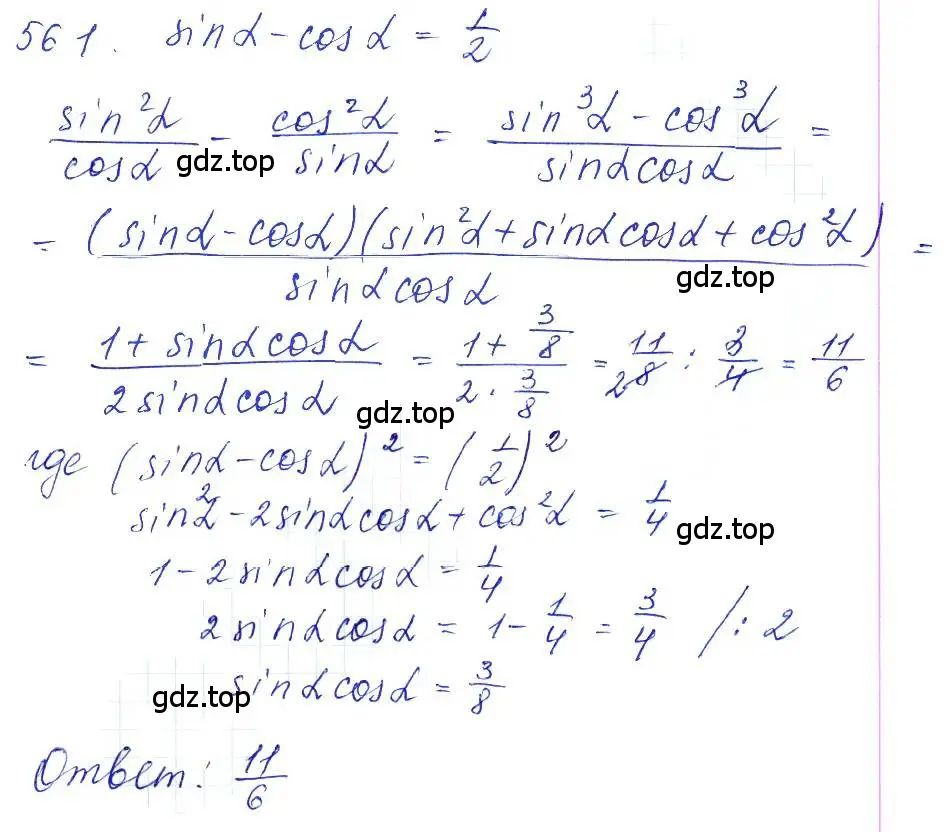 561. sinα - cosα = 1/2
sin²α/cosα - cos²α/sinα = (sin³α - cos³α)/(sinα cosα) =
gdz.top
= (sinα - cosα)(sin²α + sinα cosα + cos²α)/(sinα cosα) =
gdz.top
= (1 + sinα cosα)/(2 sinα cosα) = (1 + 3/8)/(2 · 3/8) = 11/8 : 3/4 = 11/6
gdz.top
где (sinα - cosα)² = (1/2)²
sin²α - 2sinα cosα + cos²α = 1/4
gdz.top
1 - 2sinα cosα = 1/4
2sinα cosα = 1 - 1/4 = 3/4 /: 2
sinα cosα = 3/8
gdz.top
Ответ: 11/6